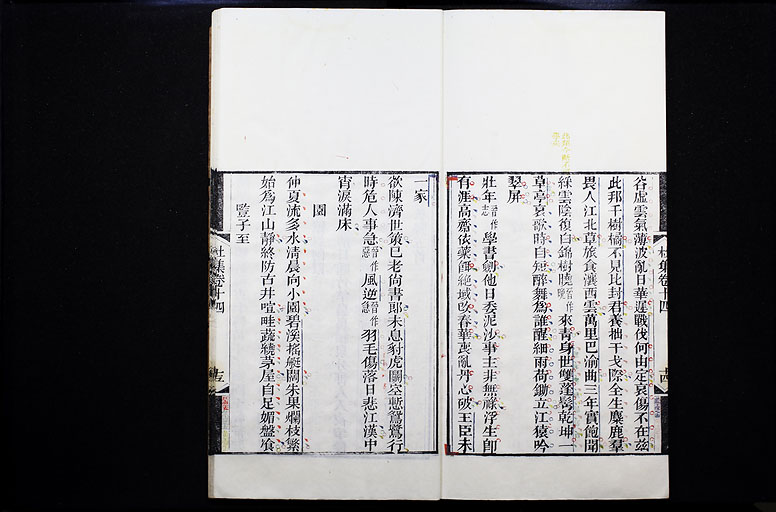 谷虛雲氣薄波亂日華遲戰伐何由定哀傷不在茲
此邦千樹橘不見比封君養拙干戈際全生麋鹿群
畏人江北草旅食瀼西雲萬里巴渝曲三年實飽聞
綵雲陰復白錦樹曉來青身世雙蓬鬢乾坤一
草亭哀歌時自短醉舞為誰醒細雨荷鋤立江猿吟
翠屏
壯年學書劍他日委泥沙事主非無祿浮生即
有涯高齋依藥餌絕域改春華喪亂丹心破王臣未
一家
欲陳濟世策已老尚書郎未息豺虎鬬空慙鴛鷺行
時危人事急風逆羽毛傷落日悲江漢中
宵淚滿床
園
仲夏流多水清晨向小園碧溪搖艇闊朱果爛枝繁
始為江山靜終防古井喧畦蔬繞茅屋自足媚盤飧
豎子至
杜集卷十四